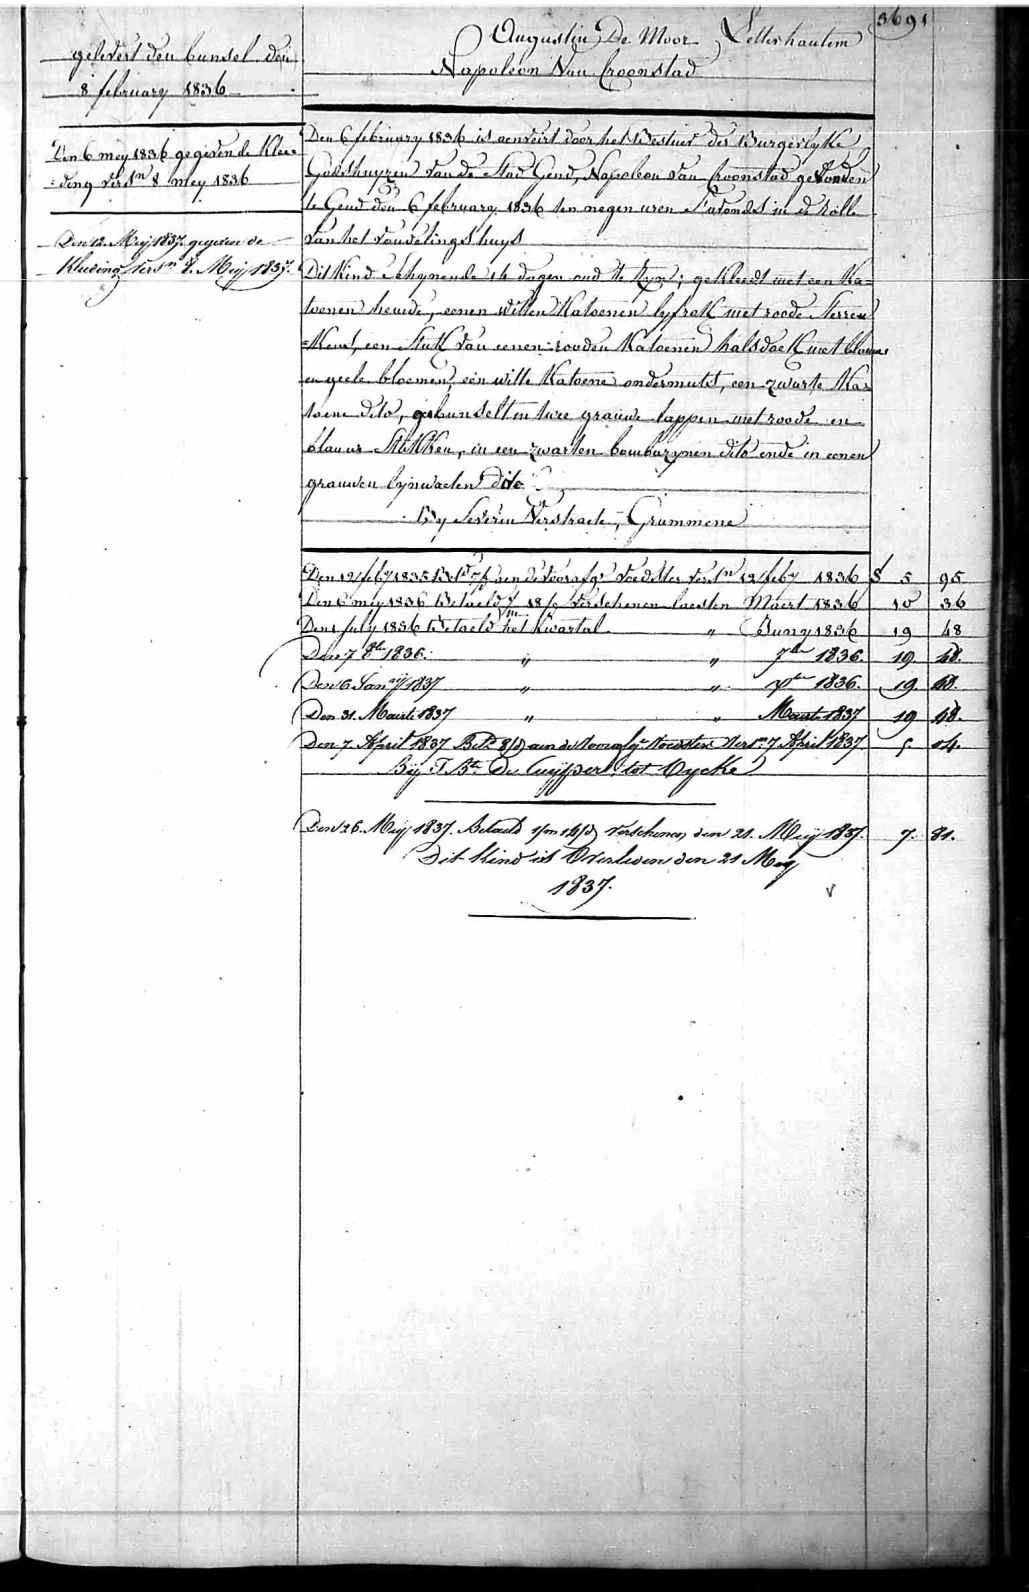 3691
Augustin De Moor Letterhautem
Napoleon Van Croonstad
gelevert den bunsel den
8 february 1836
Den 6 mey 1836 gegeven de klee=
=ding versn 8 mey 1836
Den 12. Meij 1837. gegeven de
Kleeding versn 8. Meij 1837.
Den 6 february 1836 is aenveirt door het Bestuer der Burgerlyke
Godshuyzen van de Stad Gend, Napoleon Van Croonstad gevonden
te Gend den 6 february 1836 ten negen uren s'avonds in de rolle
van het vondelingshuys
Dit Kind schynende 14 dagen oud te zyn; gekleedt met een Ka=
toenen hemde, eenen witten Katoenen lyfrok met roode sterre
een stuk van eenen rooden Katoenen halsdoek met blauwe
en geele bloemen, een witte Katoene ondermutst, een zwarte Ka=
toene dito, gebunselt in twee grauwe lappen met roode en
blauwe stukken, in een zwarten bombazynen dito ende in eenen
grauwen lynwaeten dito
By Severin Verstraete, Grammene
Den 12 feby 1835 Betd aen de voorafge voedster versn 12 feby 1836 5 95
Den 6 mey 1836 Betaeld 18/d verschenen laesten Maert 1836 10 36
Den 1 July 1836 Betaeld het kwartal " Juny 1836 19 48
Den 7 8br 1836. " " 7bre 1836. 19. 48.
Den 6 Jany 1837 " " Xbre 1836. 19. 48.
Den 31. Maarte 1837 " " Maarte 1837 19 48.
Den 7. April 1837 Bete 8/d aen de voorafge voedster versn 7 April 1837 5 04.
Bij J. Bte De Cuijper tot Oycke
Den 26. Meij 1837. Betaeld 1/m 14/d verschenen den 21. Meij 1837. 7. 81.
Dit Kind is Overleden den 21 Mey
1837.